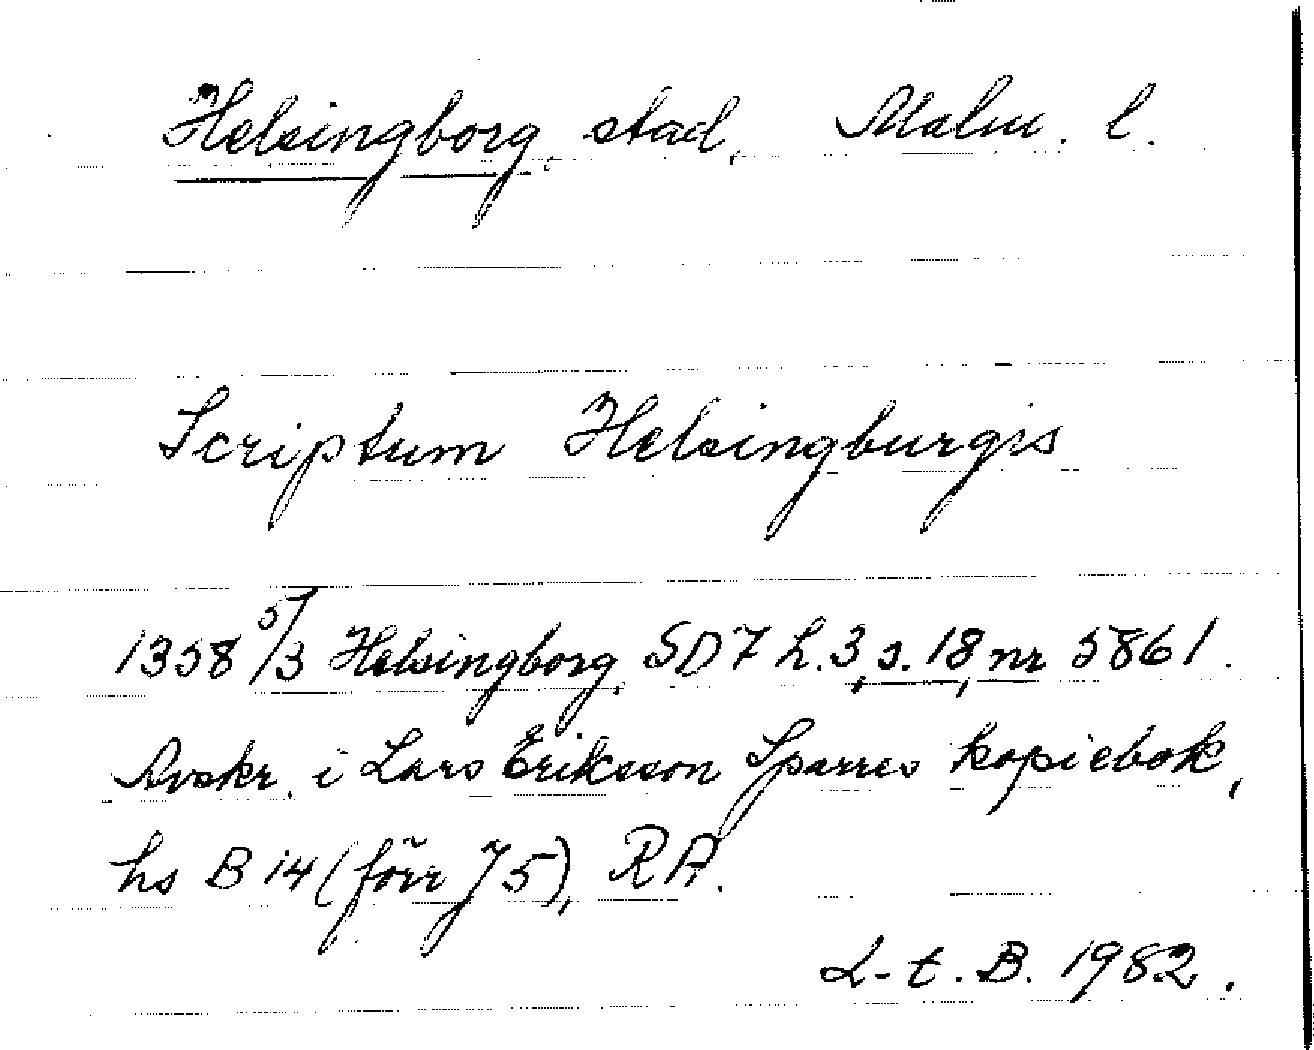 Helsingborg, stad, Malm. l.
Scriptum Helsingburgis
1358 5/3 Helsingborg, SD 7 h. 3, s. 18, nr 5861.
Avskr. i Lars Eriksson Sparres kopiebok,
hs B 14 (förr J 5), RA.
L-t. B. 1982.